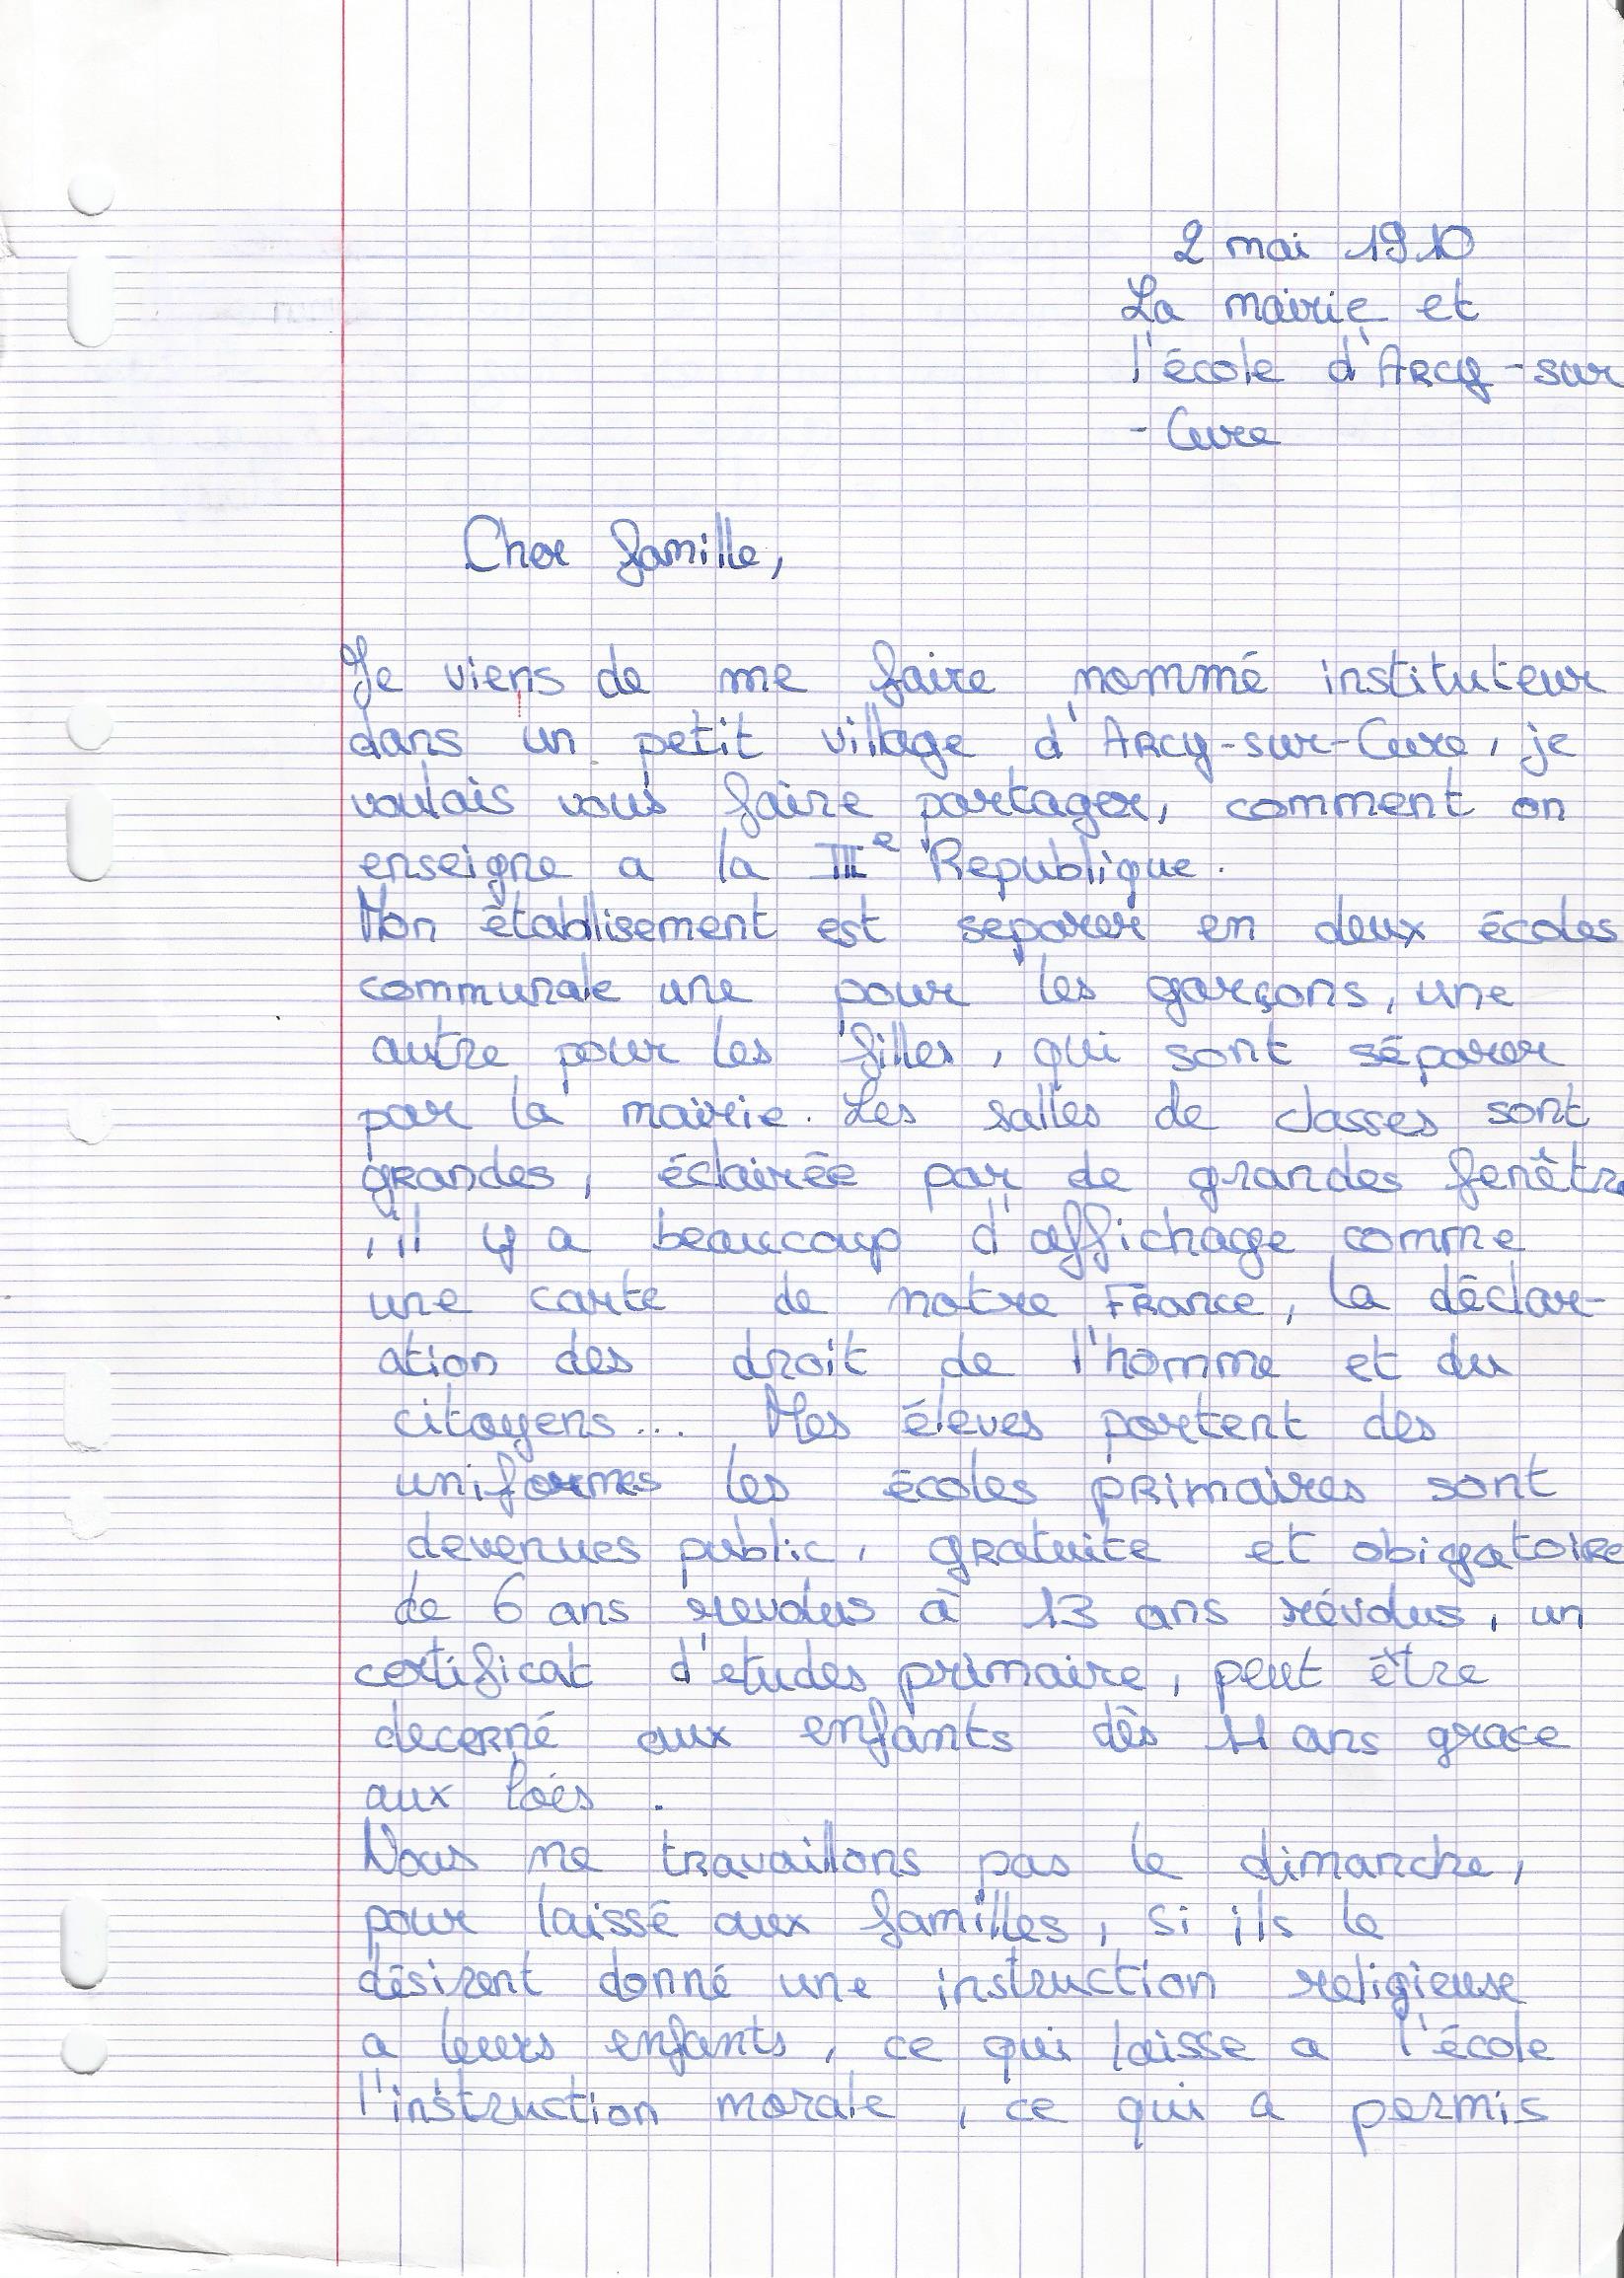 2 mai 1910
La mairie et
l'école d'Arcy-sur
-Cure
Cher famille,
Je viens de me faire nommé instituteur
dans un petit village d'Arcy-sur-Cure, je
voulais vous faire partager, comment on
enseigne a la IIIe Republique.
Mon établisement est separer en deux écoles
communale une pour les garçons, une
autre pour les filles, qui sont séparer
par la mairie. Les salles de classes sont
grandes, éclairée par de grandes fenêtr
, il y a beaucoup d'affichage comme
une carte de notre France, la déclar-
ation des droit de l'homme et du
citoyens... Mes éleves portent des
uniformes les écoles primaires sont
devenues public, gratuite et obigatoire
de 6 ans revolus à 13 ans révolus, un
certificat d'etudes primaire, peut être
decerné aux enfants dès 11 ans grace
aux loies.
Nous ne travaillons pas le dimanche,
pour laissé aux familles, si ils le
désirent donné une instruction religieuse
a leurs enfants, ce qui laisse a l'école
l'instruction morale, ce qui a permis